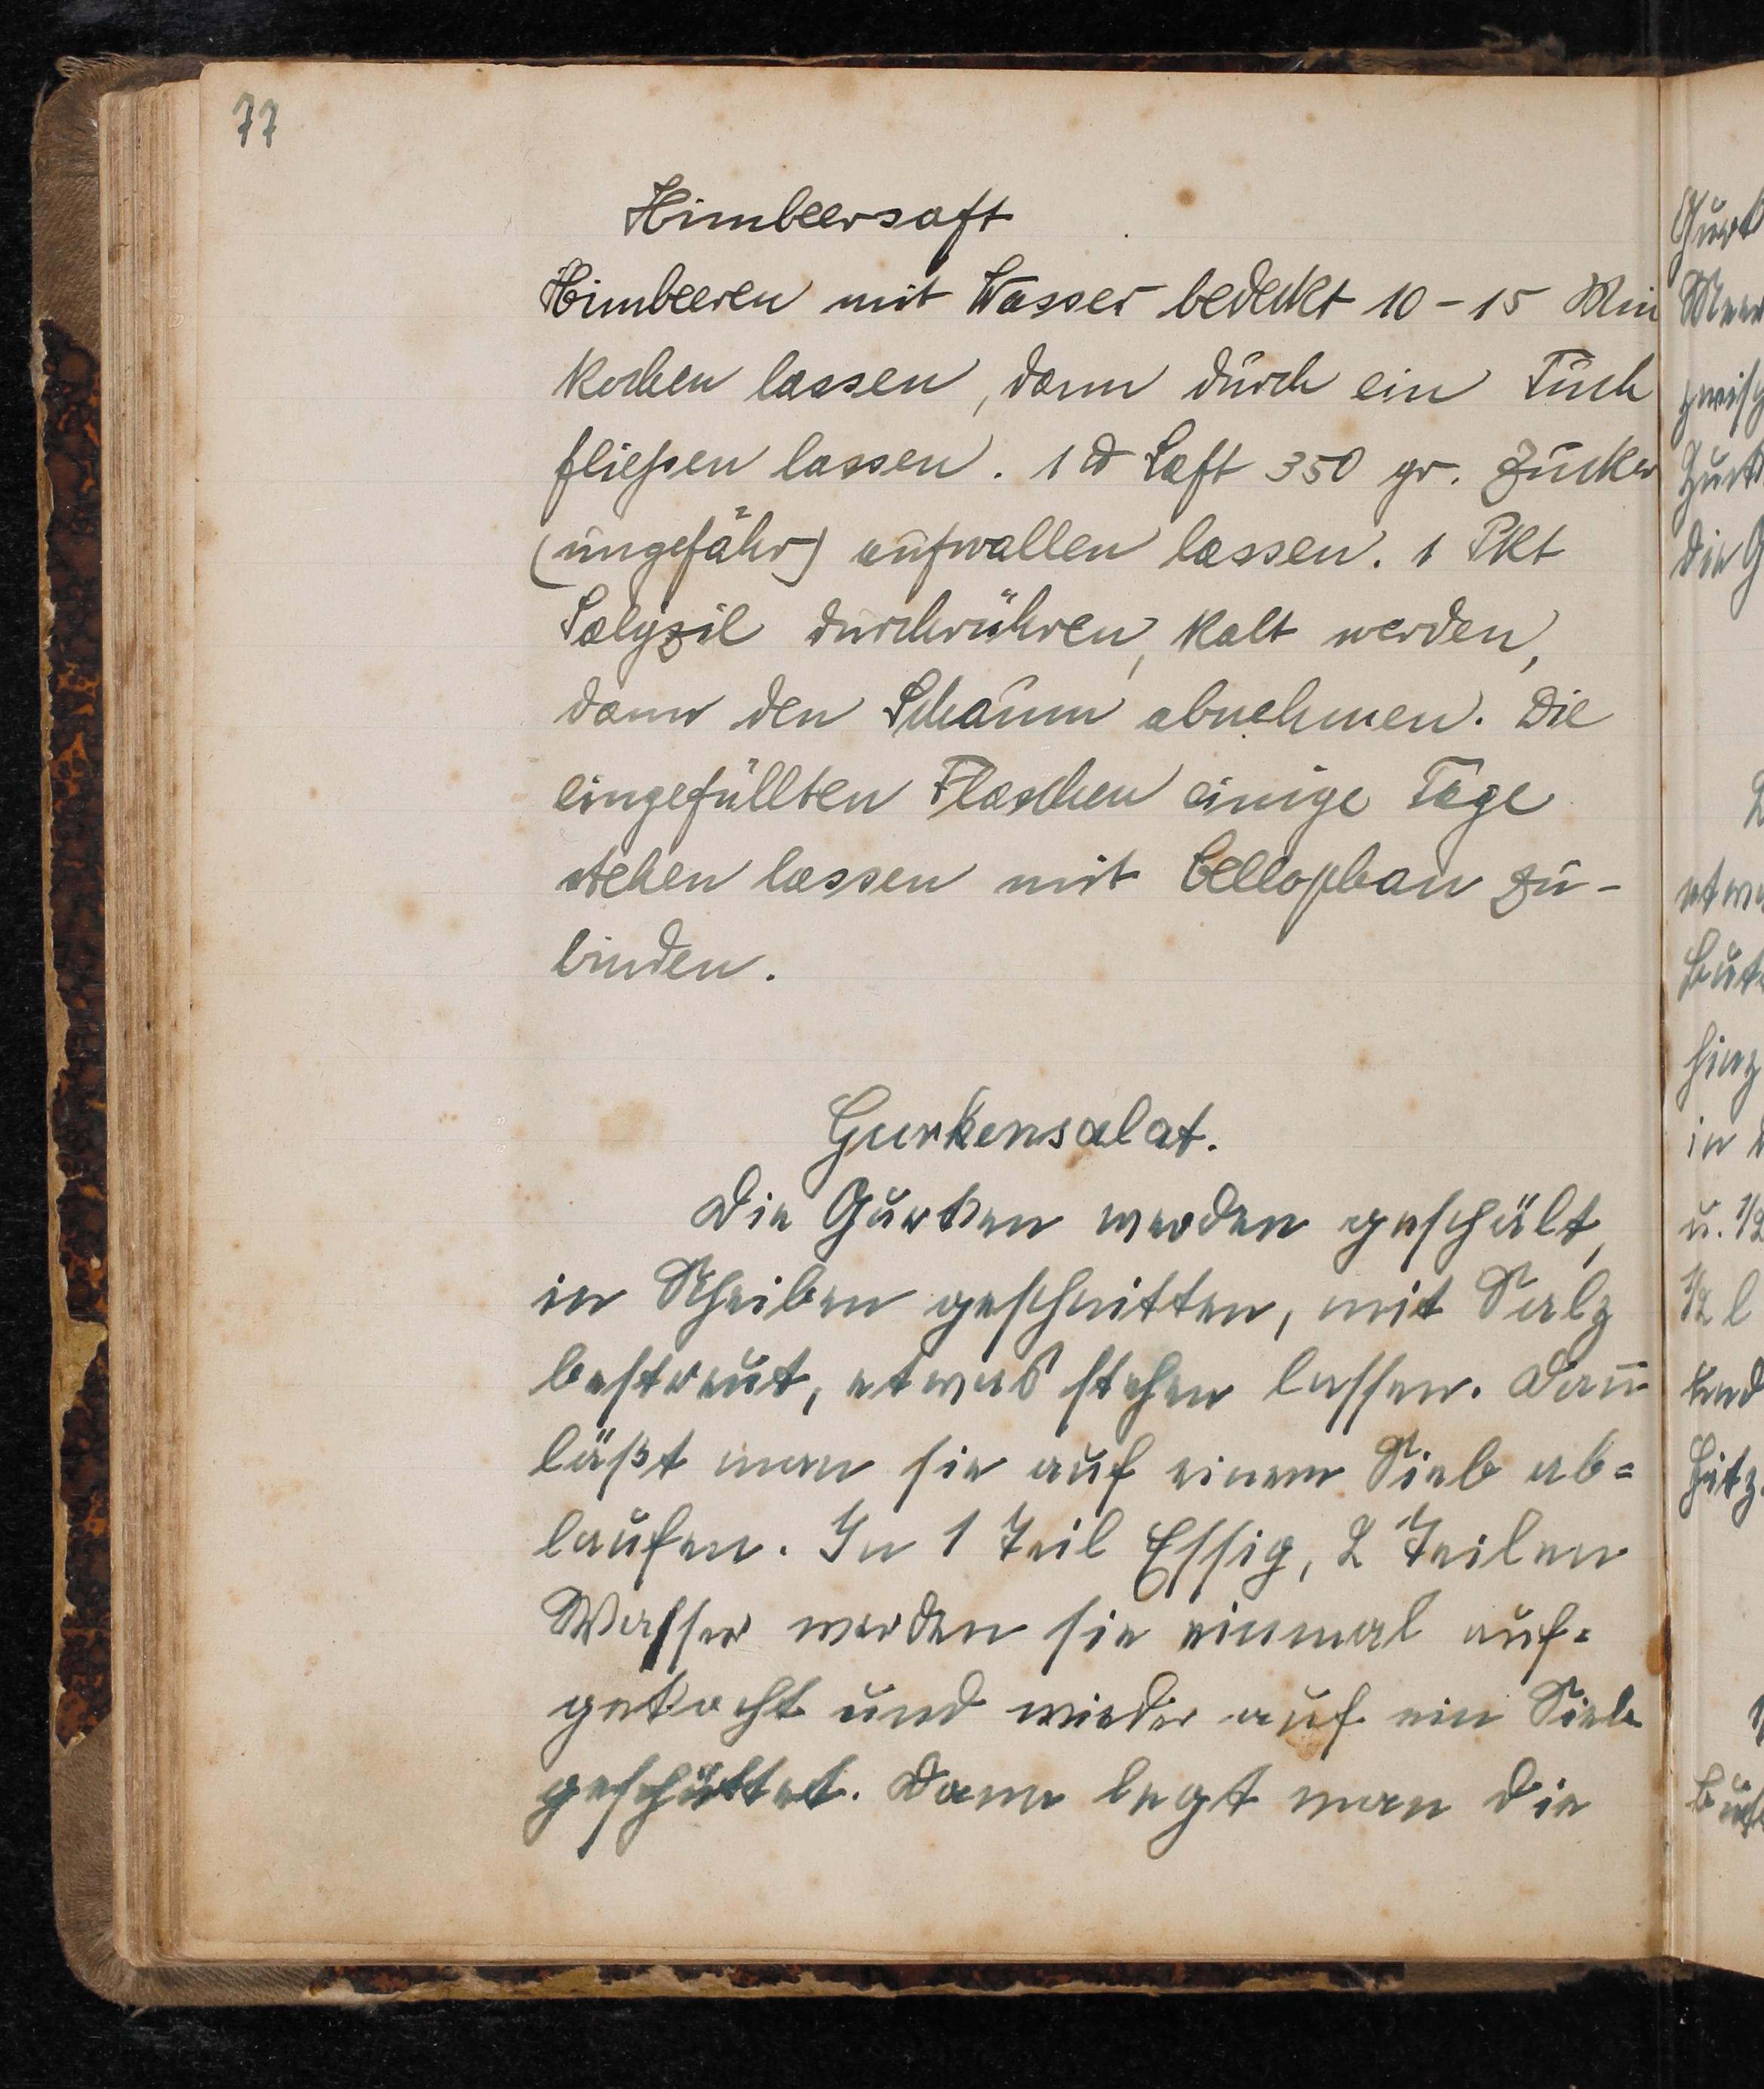 77
Himbeersaft
Himbeeren mit Wasser bedeckt 10 - 15 Min
kochen lassen, dann durch ein Tuch
fließen lassen. 1 ℔ Saft 350 gr. Zucker
(ungefähr) aufwallen lassen. 1 Pkt
Salyzil durchrühren, kalt werden,
dann den Schaum abnehmen. Die
eingefüllten Flaschen einige Tage
stehen lassen mit Cellophan zu-
binden.
Gurkensalat.
Die Gurken werden geschält,
in Scheiben geschnitten, mit Salz
bestreut, etwas stehen lassen. Dan̅
läßt man sie auf einem Sieb ab=
laufen. In 1 Teil Essig, 2 Teilen
Wasser werden sie einmal auf=
gekocht und wieder auf ein Sieb
geschüttet. Dann legt man die
Gurk
Meer
zwisch
Zuck
die G
etwa
hinz
in
u. 1/2
1/2 l
und